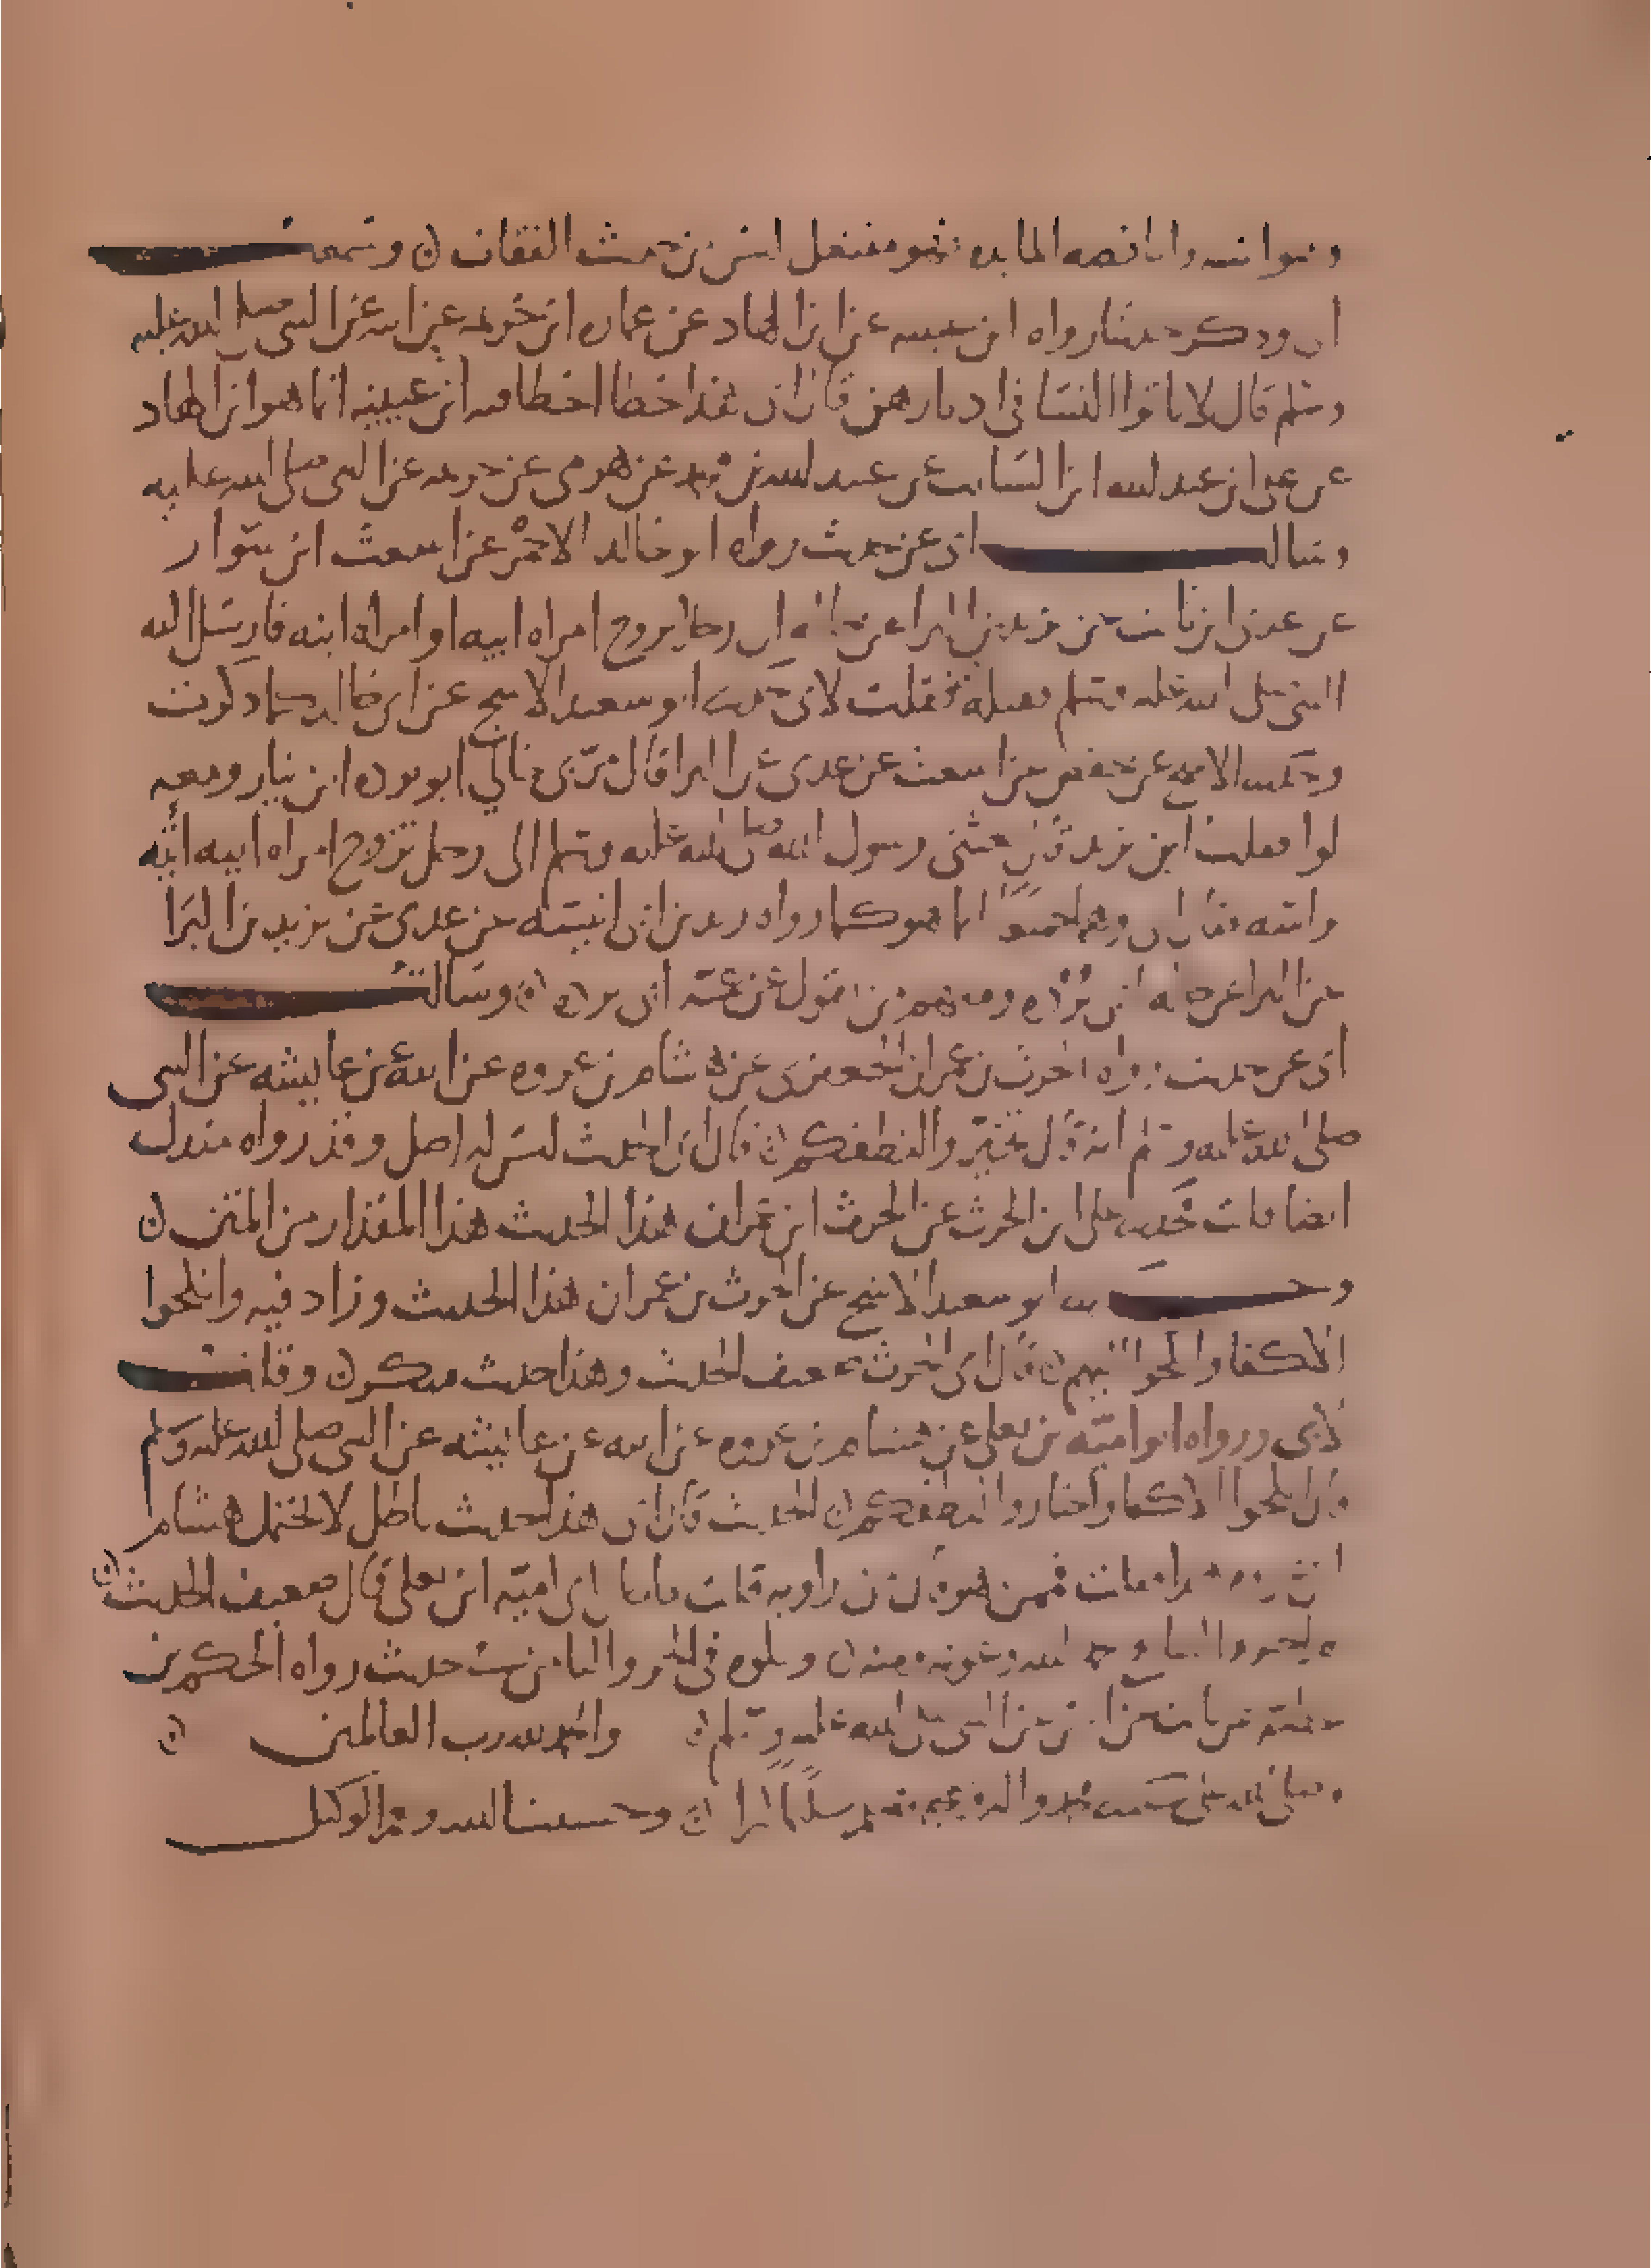 واما قصه المايده فهو مفتعل ليس من حديث الثقات ن وسمعت
ابي وذكر حديثا رواه ابن عيينه عن ابن الهاد عن عماره ابن خزيمه عن ابيه عن النبي صلى الله عليه
وسلم قال لا تاتوا النسا في ادبارهن قال ابي هذا خطا اخطا فيه ابن عيينه انما هو ابن الهاد
عن علي ابن عبد الله ابن السايب عن عبيد الله بن محمد عن هرمي عن خزيمه عن النبي صلى الله عليه
وسالت ابي عن حديث رواه ابو خالد الاحمر عن اشعث ابن سوار
عن عدي ابن ثابت عن يزيد بن البرا عن خاله ان رجلا تزوج امراه ابيه او امراه ابنه فارسل اليه
النبي صلى الله عليه وسلم فقتله فقلت لابي حدثنا ابو سعيد الاشج عن ابي خالد كما ذكرت
وحدثنا الاشج عن حفص عن اشعث عن عدي عن البرا قال مر بي خالي ابو برده ابن نيار ومعه
لوا فقلت اين تريد قال بعثني رسول الله صلى الله عليه وسلم الى رجل تزوج امراه ابيه اتيه
قال ابي وهما جميعا انما هو كما رواه زيد بن ابي انيسه عن عدي عن يزيد بن البرا
عن البرا عن خاله ابي برده ومنهم من يقول عن عمه ابي برده ن وسالت
ابي عن حديث رواه الحرث بن عمران الجعفري عن هشام بن عروه عن ابيه عن عايشه عن النبي
صلى الله عليه وسلم انه قال تخيروا لنطفكم ن قال ابي الحديث ليس له اصل وقد رواه مندل
ايضا حدثنا علي ابن الحرث عن الحرث ابن عمران هذا الحديث هذا المقدار من المتن ن
وحدثنا ابو سعيد الاشج عن الحرث بن عمران هذا الحديث وزاد فيه وانكحوا
الاكفا وانكحوا اليهم ن قال ابي الحرث ضعيف الحديث وهذا حديث منكر ن وقلت
لابي ورواه ابو اميه بن يعلى عن هشام بن عروه عن ابيه عن عايشه عن النبي صلى الله عليه وسلم
قال انكحوا الاكفا واختاروا لنطفكم ن الحديث قال ابي هذا حديث باطل لا يحتمل هشام
ابن عروه هذا قلت فممن هو قال من راويه قلت ما حال ابي اميه ابن يعلى قال ضعيف الحديث ن
الله وعونه ومنه ن ويتلوه في الجزو الثامن حديث رواه الحكم بن
عطيه عن ثابت عن انس عن النبي صلى الله عليه وسلم ن والحمد لله رب العالمين ن
وصلى الله على محمد واله وصحبه وسلم ن وحسبنا الله ونعم الوكيل